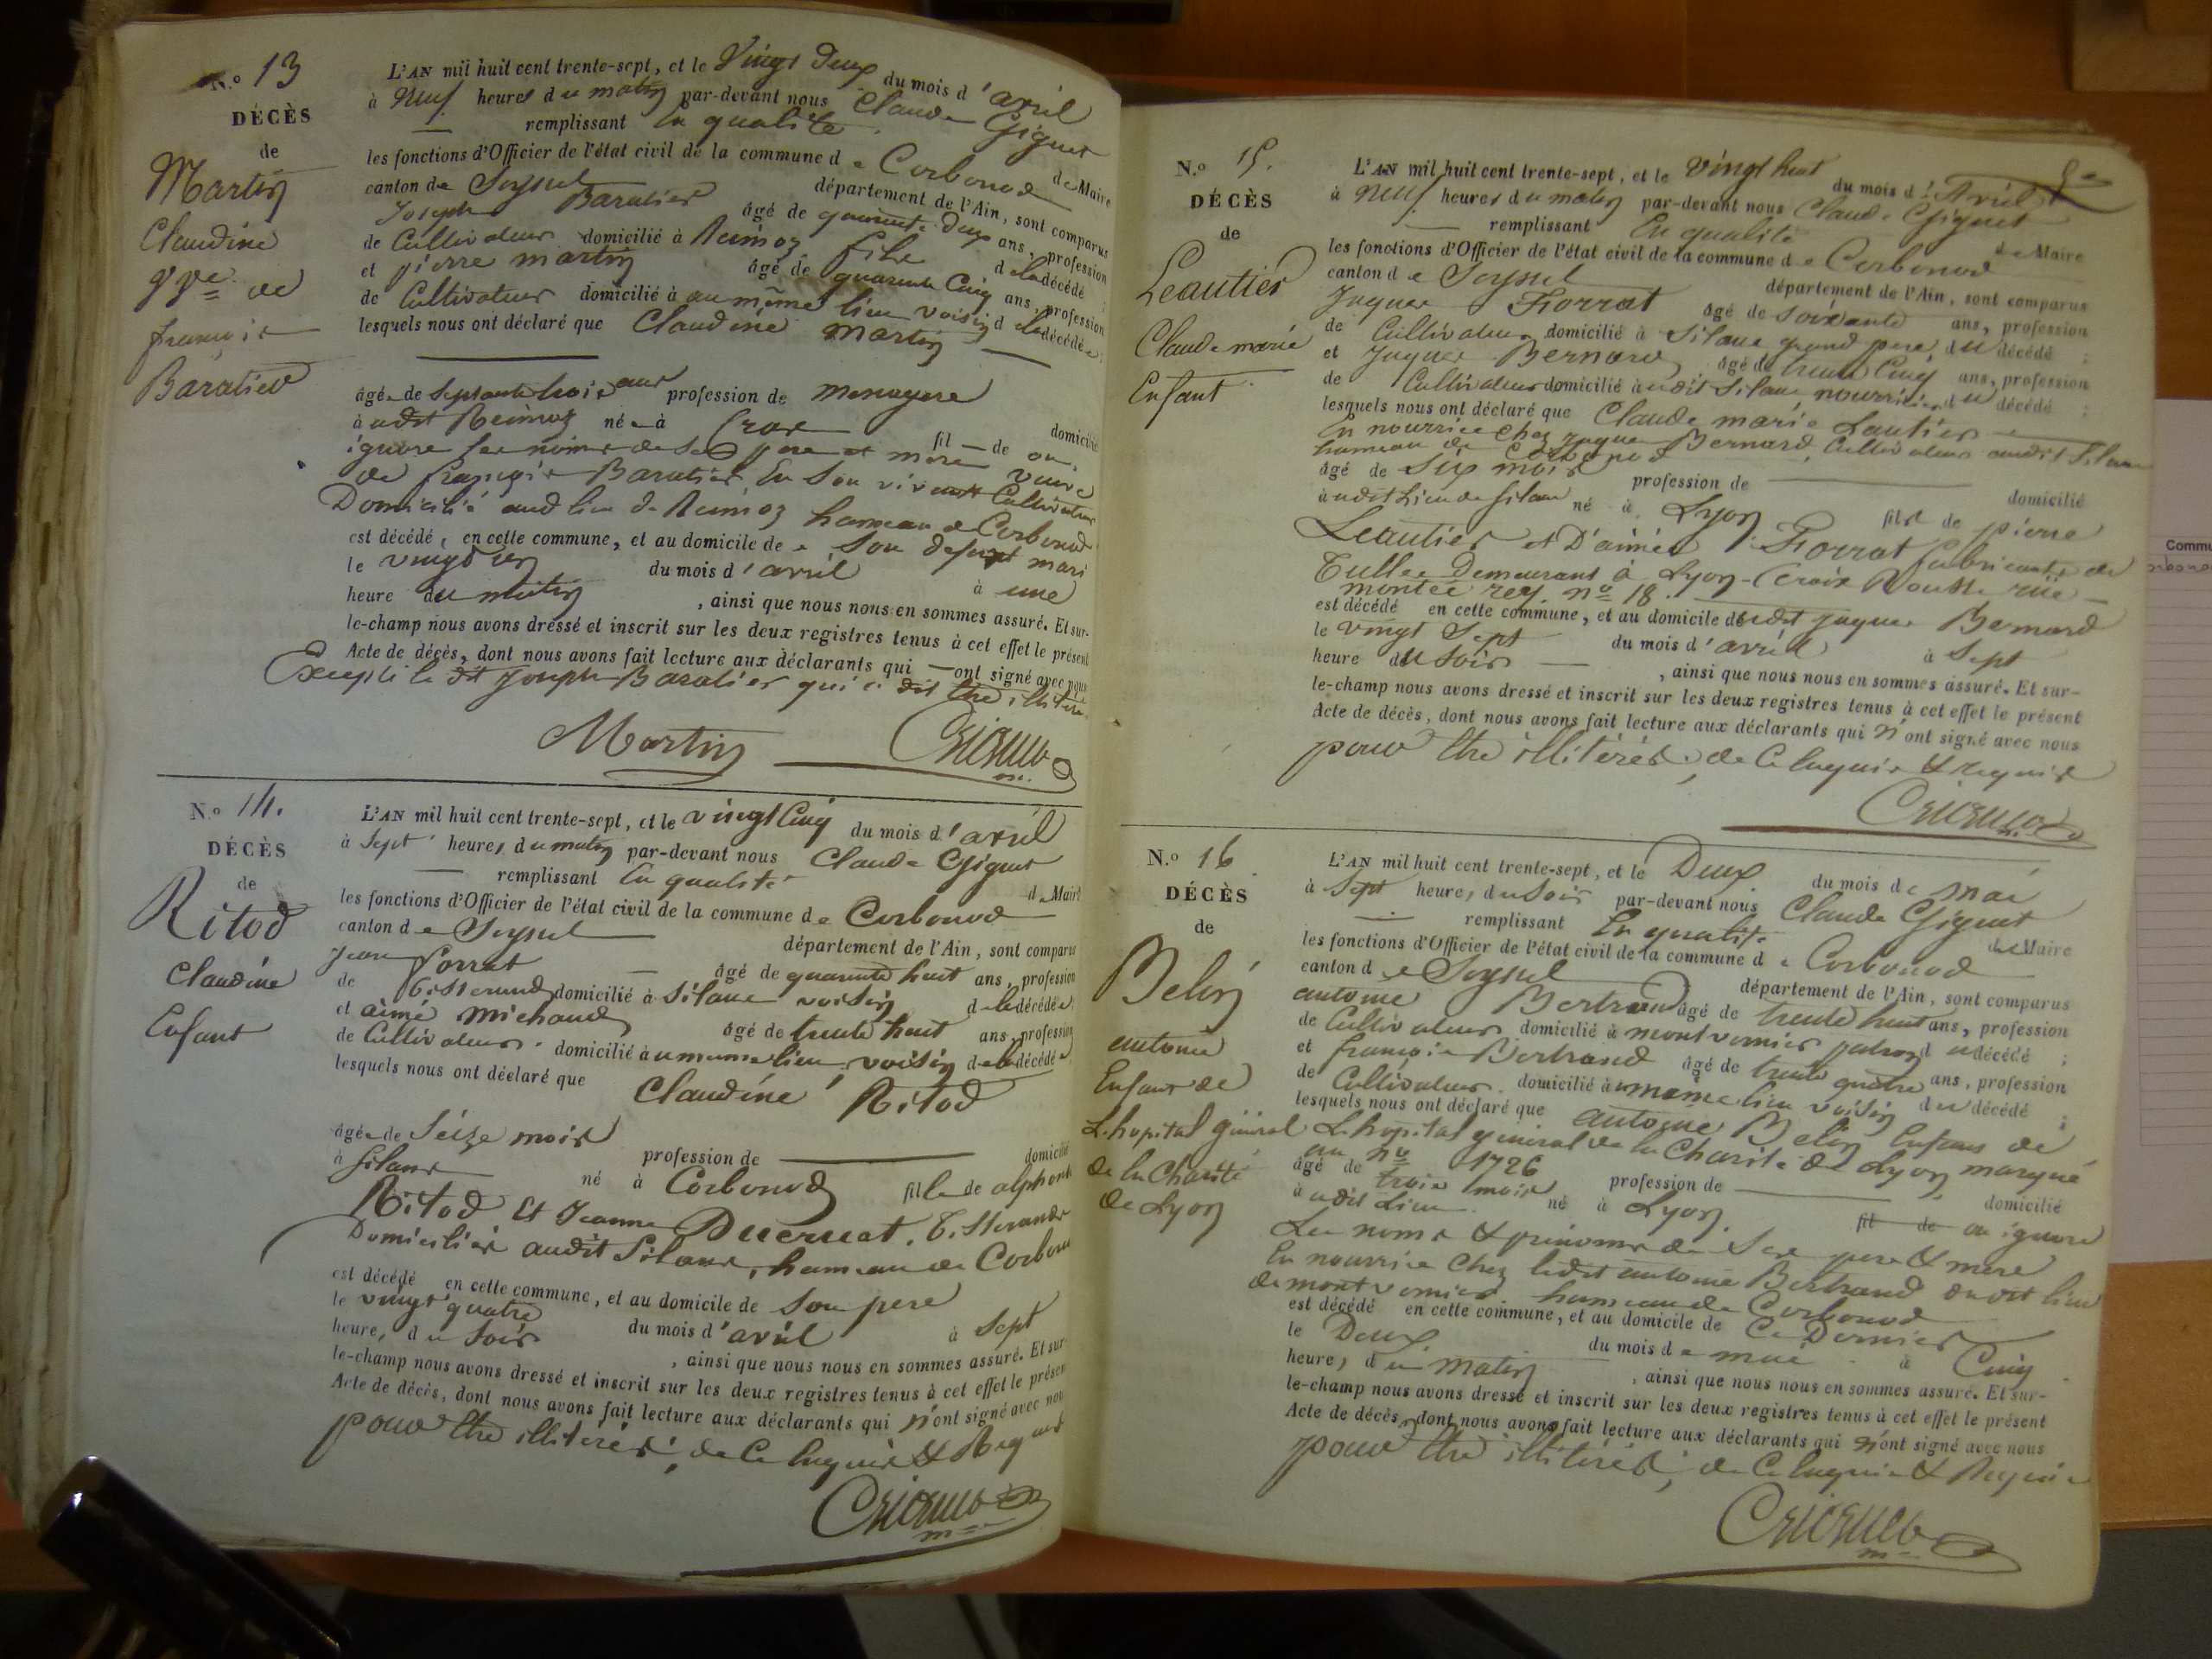 N.° 13
DÉCÈS
de
Martin
Claudine
Vve de
françois
Baratier
L'AN mil huit cent trente-sept, et le Vingt Deux du mois d'avril
à Neuf heures du matin par-devant nous Claude Giguet
remplissant en qualité de Maire
les fonctions d'Officier de l'état civil de la commune de Corbonod
canton de Seyssel département de l'Ain, sont comparus
Joseph Baratier âgé de quarante Deux ans, profession
de Cultivateur domicilié à Reimoz fils de la décédée ;
et pierre martin âgé de quarante Cinq ans, profession
de Cultivateur domicilié à au même lieu voisin de la décédée ;
lesquels nous ont déclaré que Claudine Martin
âgée de Septante trois ans profession de menagere domicilié
à audit Reimoz née à fil de on
ignore les noms de ses pere et mere veuve
de françois Baratier en son vivant Cultivateur
Domicilié aud lieu de Reimoz hameau de Corbonod
est décédé, en cette commune, et au domicile de son defunt mari
le vingt un du mois d'avril à une
heure du matin , ainsi que nous nous en sommes assuré. Et sur-
le-champ nous avons dressé et inscrit sur les deux registres tenus à cet effet le présent
Acte de décès, dont nous avons fait lecture aux déclarants qui ont signé avec nous
Excepté le dit Joseph Baratier qui a dit être illitéré
Martin
N.° 14.
DÉCÈS
de
Ritod
Claudine
Enfant
L'AN mil huit cent trente-sept, et le vingt Cinq du mois d'avril
à Sept heures du matin par-devant nous Claude Giguet
remplissant en qualité de Maire
les fonctions d'Officier de l'état civil de la commune de Corbonod
canton de Seyssel département de l'Ain, sont comparus
Jean Forrat âgé de quarante huit ans, profession
de tisserand domicilié à Silans voisin de la décédée ;
et aimé Michaud âgé de trente huit ans, profession
de Cultivateur domicilié à au meme lieu voisin de la décédée
lesquels nous ont déclaré que Claudine Ritod
âgée de Seize mois profession de domicilié
à Silans né à Corbonod fille de alphonse
Ritod Et Jeanne Ducruet, Tisserands
Domiciliés audit Silans, hameau de Corbonod
est décédé en cette commune, et au domicile de Son pere
le vingt quatre du mois d'avril à Sept
heure, du Soir , ainsi que nous nous en sommes assuré. Et sur-
le-champ nous avons dressé et inscrit sur les deux registres tenus à cet effet le présent
Acte de décès, dont nous avons fait lecture aux déclarants qui n'ont signé avec nous
pour être illiterés, de ce Enquis & Requis
N.° 15.
DÉCÈS
de
Leautier
Claude marie
Enfant
L'AN mil huit cent trente-sept, et le vingt huit du mois d'Avril
à Neuf heures du matin par-devant nous Claude Giguet
remplissant En qualité de Maire
les fonctions d'Officier de l'état civil de la commune de Corbonod
canton de Seyssel département de l'Ain, sont comparus
Jaques Forrat âgé de soixante ans, profession
de Cultivateur domicilié à Silans grand pere du décédé ;
et Jaques Bernard âgé de trente Cinq ans, profession
de Cultivateur domicilié à audit Silans nourricier du décédé ;
lesquels nous ont déclaré que Claude marie Leautier
En nourrice chez Jaques Bernard, Cultivateur audit Silans
hameau de Corbonod
âgé de Six mois profession de domicilié
à audit Lieu de Silans né à Lyon fils de pierre
Leautier et D'aimée Forrat fabricants de
Tulles Demeurant à Lyon Croix Rousse rue
montée rey. n° 18.
est décédé en cette commune, et au domicile dudit Jaques Bernard
le vingt Sept du mois d'avril à Sept
heure du Soir , ainsi que nous nous en sommes assuré. Et sur-
le-champ nous avons dressé et inscrit sur les deux registres tenus à cet effet le présent
Acte de décès, dont nous avons fait lecture aux déclarants qui n'ont signé avec nous
pour être illitérés, de ce Enquis & requis
N.° 16
DÉCÈS
de
Belin
antoine
Enfant de
L'hopital général
de la Charité
de Lyon
L'AN mil huit cent trente-sept, et le Deux du mois de mai
à Sept heure, du Soir par-devant nous Claude Giguet
remplissant En qualité de Maire
les fonctions d'Officier de l'état civil de la commune de Corbonod
canton de Seyssel département de l'Ain, sont comparus
antoine Bertrand âgé de trente huit ans, profession
de Cultivateur domicilié à montvernier patron du décédé ;
et françois Bertrand âgé de trente quatre ans, profession
de Cultivateur domicilié à u meme lieu voisin du décédé ;
lesquels nous ont déclaré que antoine Belin Enfant de
L'hopital general de la Charité de Lyon marqué
au n° 1726
âgé de trois mois profession de domicilié
à udit Lieu né à Lyon. fil de on ignore
Les noms & prénoms de Ses pere & mere
En nourrice Chez ledit antoine Bertrand dudit lieu
de montvernier hameau de Corbonod
est décédé en cette commune, et au domicile de Ce Dernier
le Deux du mois de mai à Cinq
heure, du matin , ainsi que nous nous en sommes assuré. Et sur-
le-champ nous avons dressé et inscrit sur les deux registres tenus à cet effet le présent
Acte de décès, dont nous avons fait lecture aux déclarants qui n'ont signé avec nous
pour être illitérés, de Ce Enquis & Requis